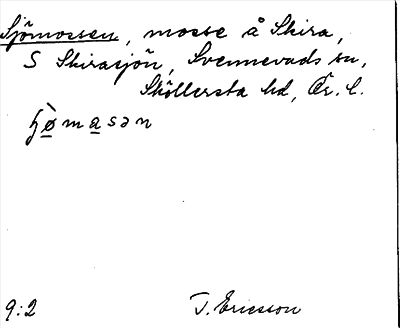 Sjömossen, mosse å Skira,
S Skirasjön, Svennevads sn,
Sköllersta hd, Ör. l.
ʃø̀masən
9:2 T. Ericsson